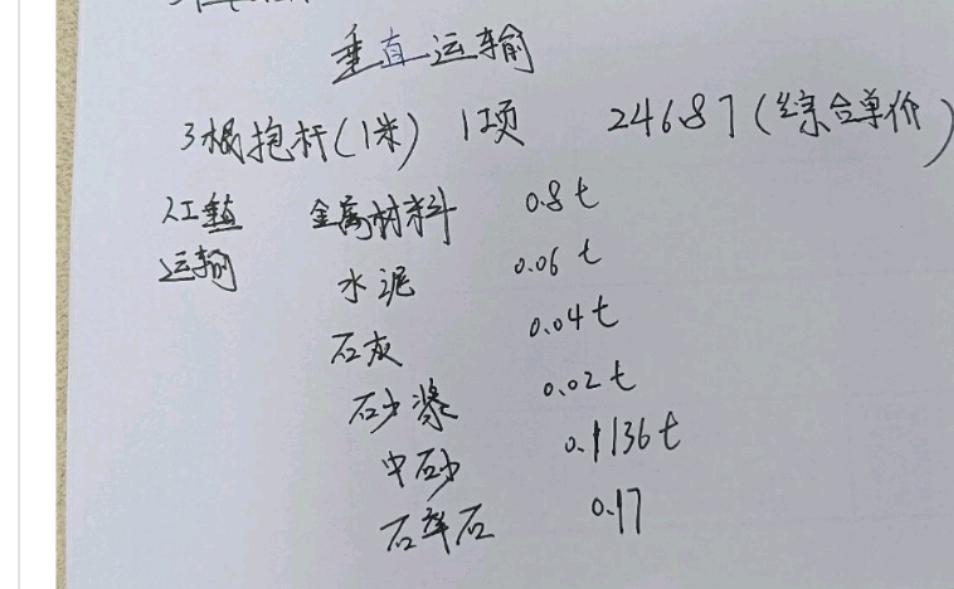 垂直运输
3根抱杆(1米) 1项 24687(综合单价)
人工垂直 金属材料 0.8t
运输 水泥 0.06t
石灰 0.04t
砂浆 0.02t
中砂 0.1136t
碎石 0.17